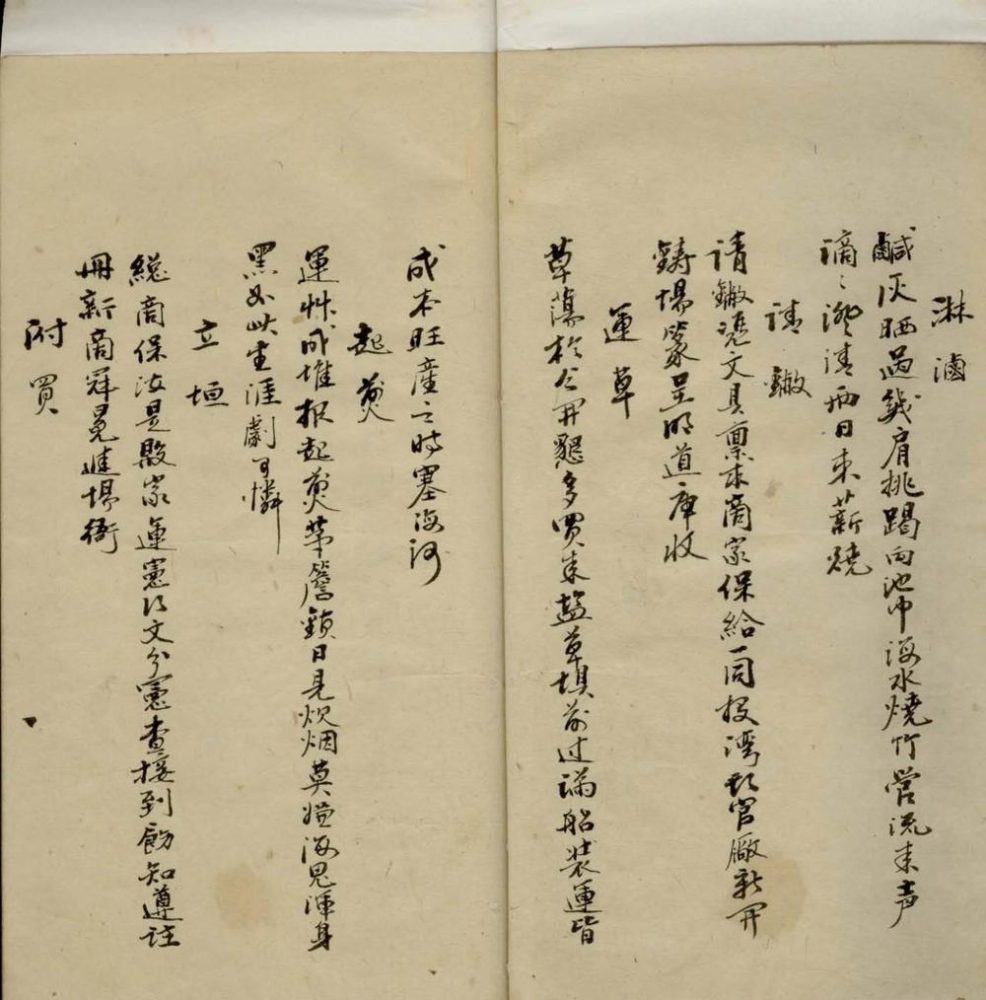 淋滷
鹹灰晒過幾肩挑踢向池中海水燒竹管流来声
滴〻澄清兩日束薪燒
請鐅
請鐅澆文具禀求商家保給一同投湾頭官廠新開
鑄場篆呈明道库收
運草
草蕩於今開墾多買来塩草填前过满船装運皆
成本旺産之時塞海河
起煎
運艸成堆报起煎茅簷鎮日見炊烟莫嫌海鬼渾身
黑如此生涯劇可憐
立垣
緫商保汝是殷家運憲移文分憲查接到飭知遵註
冊新商冠冕進場衙
附買